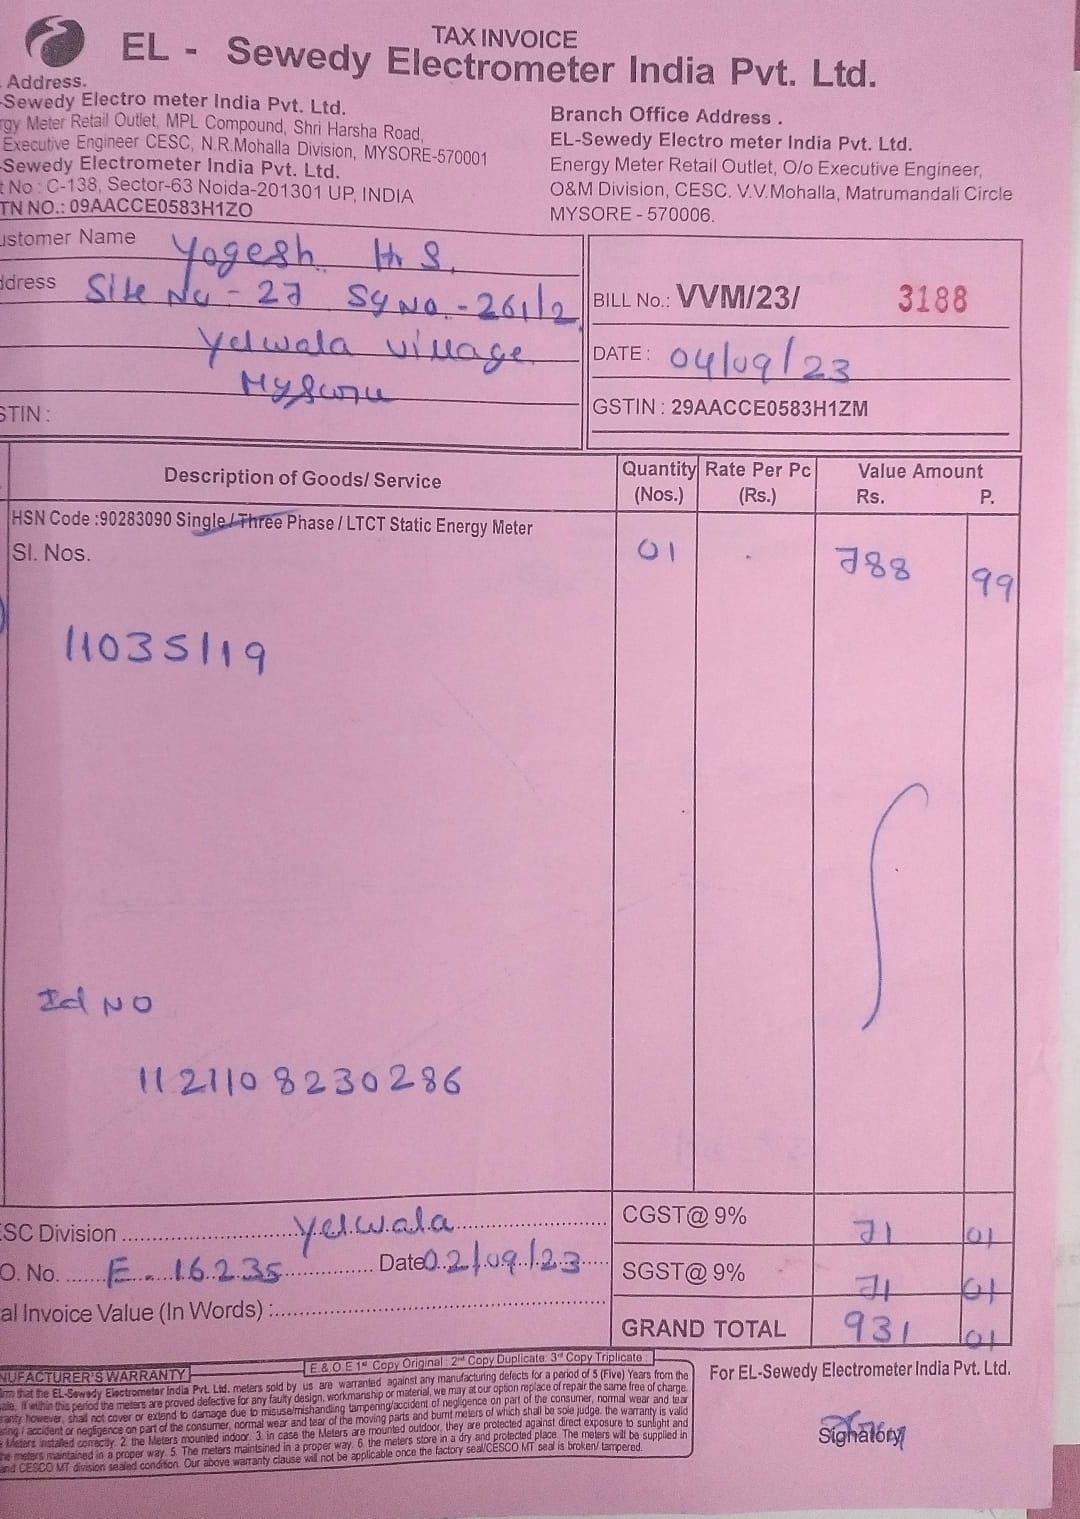 TAX INVOICE
EL - Sewedy Electrometer India Pvt. Ltd.
Address.
-Sewedy Electro meter India Pvt. Ltd.
rgy Meter Retail Outlet, MPL Compound, Shri Harsha Road,
Executive Engineer CESC, N.R.Mohalla Division, MYSORE-570001
-Sewedy Electrometer India Pvt. Ltd.
t No : C-138, Sector-63 Noida-201301 UP, INDIA
TN NO.: 09AACCE0583H1ZO
Branch Office Address .
EL-Sewedy Electro meter India Pvt. Ltd.
Energy Meter Retail Outlet, O/o Executive Engineer,
O&M Division, CESC. V.V.Mohalla, Matrumandali Circle
MYSORE - 570006.
ustomer Name Yogesh H S.
ddress Site No - 27 Sy No. - 261/2
Yelwala village
Mysuru
STIN :
BILL No.: VVM/23/ 3188
DATE : 04/09/23
GSTIN : 29AACCE0583H1ZM
Description of Goods/ Service Quantity (Nos.) Rate Per Pc (Rs.) Value Amount Rs. P.
HSN Code :90283090 Single / Three Phase / LTCT Static Energy Meter
Sl. Nos. 01 788 99
11035119
Id NO
1121108230286
SC Division Yelwala
O. No. E - 16235 Date 02/09/23
al Invoice Value (In Words) :
CGST@ 9% 71 01
SGST@ 9% 71 01
GRAND TOTAL 931 01
E & O E 1st Copy Original : 2nd Copy Duplicate: 3rd Copy Triplicate :
NUFACTURER'S WARRANTY
rm that the EL-Sewedy Electrometer India Pvt. Ltd. meters sold by us are warranted against any manufacturing defects for a period of 5 (Five) Years from the
ale. If within this period the meters are proved defective for any faulty design, workmanship or material, we may at our option replace of repair the same free of charge.
ranty however, shall not cover or extend to damage due to misuse/mishandling tampering/accident of negligence on part of the consumer, normal wear and tear
ering / accident or negligence on part of the consumer, normal wear and tear of the moving parts and burnt meters of which shall be sole judge. the warranty is valid
Meters installed correctly. 2. the Meters mounted indoor. 3. in case the Meters are mounted outdoor, they are protected against direct exposure to sunlight and
he meters maintained in a proper way. 5. The meters maintsined in a proper way. 6. the meters store in a dry and protected place. The meters will be supplied in
and CESCO MT division sealed condition. Our above warranty clause will not be applicable once the factory seal/CESCO MT seal is broken/ tampered.
For EL-Sewedy Electrometer India Pvt. Ltd.
Signatory